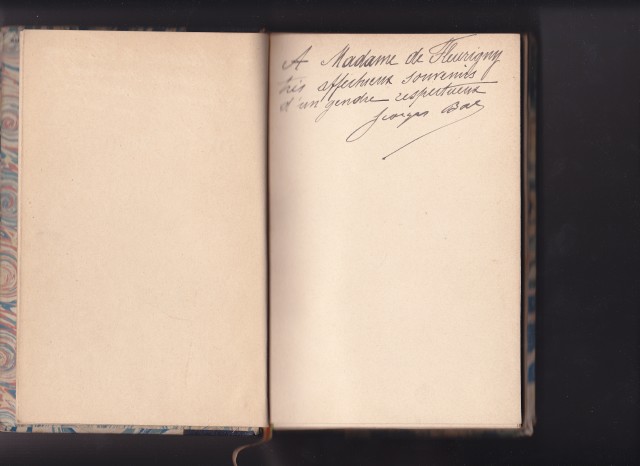 A Madame de Fleurigny
très affectueux souvenirs
d'un gendre respectueux
Georges